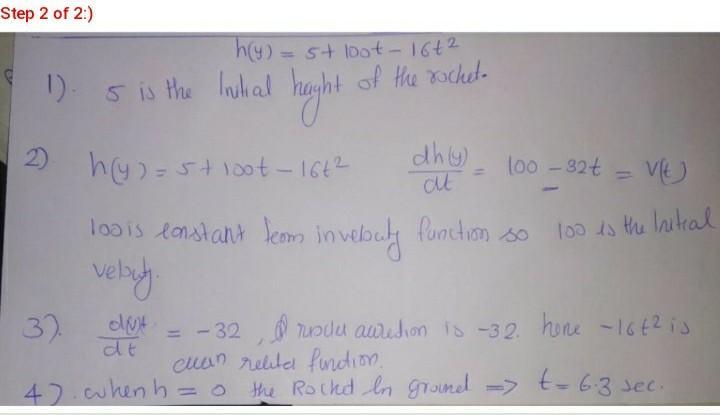 Step 2 of 2:)
h(y) = 5 + 100t - 16t²
1). 5 is the Initial haght of the rocket.
2) h(y) = 5 + 100t - 16t² dh(y)/dt = 100 - 32t = V(t)
100 is constant term in velocity function so 100 is the Initial
velocity.
3). = -32 , is -32. here -16t² is
function.
4). when h = 0 the Rocket In ground => t = 6.3 sec.